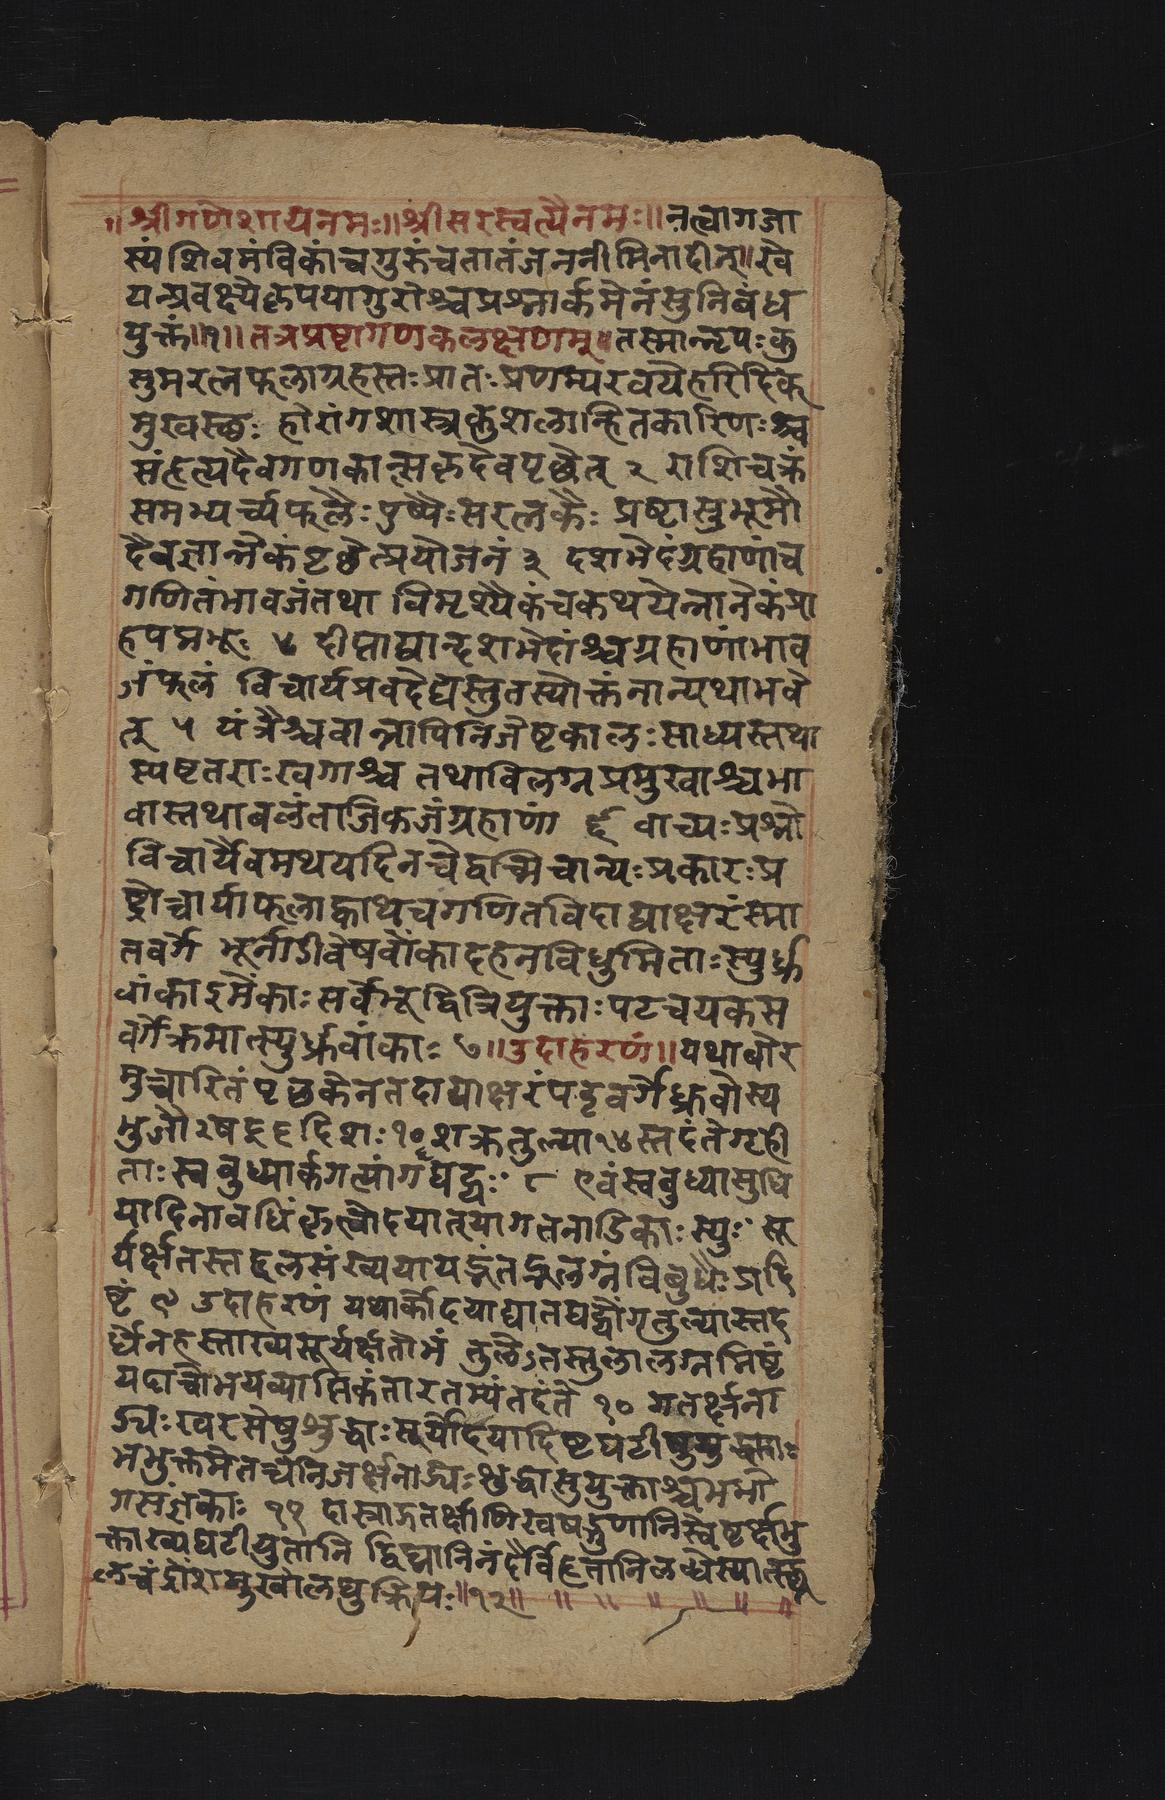 ॥श्रीगणेशायनमः॥श्रीसरस्वत्यैनमः॥नत्वागजा
स्यंशिवमंविकांचगुरुंचतातंजननीमिनादीन्॥खे
यन्प्रवक्ष्येकृपयागुरोश्चप्रश्नार्कमेनंसुनिबंध
युक्तं॥१॥तत्रप्रष्टागणकलक्षणम्॥तस्मान्नृपःकु
सुमरत्नफलाग्रहस्तःप्रातःप्रणम्यरवयेहरिदिक्
मुखस्छः होरांगशास्त्रकुशलान्हितकारिणःश्च
संहृत्यदैवगणकान्सकृदेवपृछेत् २ राशिचक्रं
समभ्यर्च्यफलैःपुष्पैःसरत्नकैः प्रष्टासुभूमौ
दैवज्ञान्नेकंपृछेत्प्रयोजनं ३ दशभेदंग्रहाणांच
गणितंभावजंतथा विमृश्यैकंचकथयेन्नानेकंप्रा
हपद्मभूः ४ दीप्ताद्यान्दशभेदांश्चग्रहाणांभाव
जंफलं विचार्यप्रवदेद्यस्तुतस्योक्तंनान्यथाभवे
त् ५ यंत्रैश्चवान्नापिनिजेष्टकालःसाध्यस्तथा
स्पष्टतराःखगाश्च तथाविलग्नप्रमुखाश्चभा
वास्तथाबलंताजिकजंग्रहाणां ६ वाच्यःप्रश्नो
विचार्यैवमथयदिनचेद्वच्मिचान्यःप्रकारःप्र
ष्ट्रोच्चार्याफलाह्वाथचगणितविदाद्याक्षरंस्मा
तवर्गे भूर्नागावेषवोंकादहनविधुमिताःस्युर्ध्रु
वांकाइमेंकाः सर्वेभूद्वित्रियुक्ताःपटचयकस
वर्गेक्रमात्स्युर्ध्रुवांकाः ७॥उदाहरणं॥यथावौर
मुच्चारितंपृछकेनतदाद्याक्षरंपहृवर्गेध्रुवोस्य
भुजौरषट्६दिशः१०शक्रतुल्या१४स्तदंतेगृही
ताःस्वबुध्यार्कगत्यांगषद्घः ८ एवंस्वबुध्यासुधि
यादिनावधिंकृत्वोदयात्तयागतनाडिकाःस्युः सू
र्यर्क्षतस्तद्दलसंख्ययायद्भंतद्भूलग्नंविबुधैःप्रदि
ष्टं ९ उदाहरणं यथार्कोदयाद्यातघट्योंगतुल्यास्तद
र्धेनहस्ताख्यसूर्यर्क्षतोभं तुलेऽतस्तुलालग्नमिष्टं
यदाचोभयव्याप्तिकंतारतम्यंतदंते १० गतर्क्षना
ड्यःखरसेषुशुद्धाःसूर्योदयादिष्टघटी
भभुक्तमेतच्चनिजर्क्षनाड्यःशुद्धासुयुक्ताश्चभभो
गसंज्ञकाः ११ दास्त्राद्गतर्क्षाणिखषड्गुणानिस्वेष्टर्क्षभु
क्ताख्यघटीयुतानि द्विघ्नानिनंदैर्विहृतानिलब्धंस्यात्स्थू
लचंद्रोंशमुखोलघुक्रियः॥१२॥ ॥ ॥ ॥ ॥ ॥ ॥